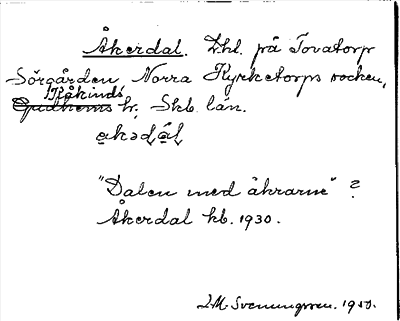 Åkerdal. Lhl. på Tovatorp
Sörgården Norra Kyrketorps socken,
Kåkinds
Gudhems hr; Skb. län.
akədál
"Dalen med åkrarne" ?
Åkerdal kb. 1930.
L M Svenungsson. 1950.